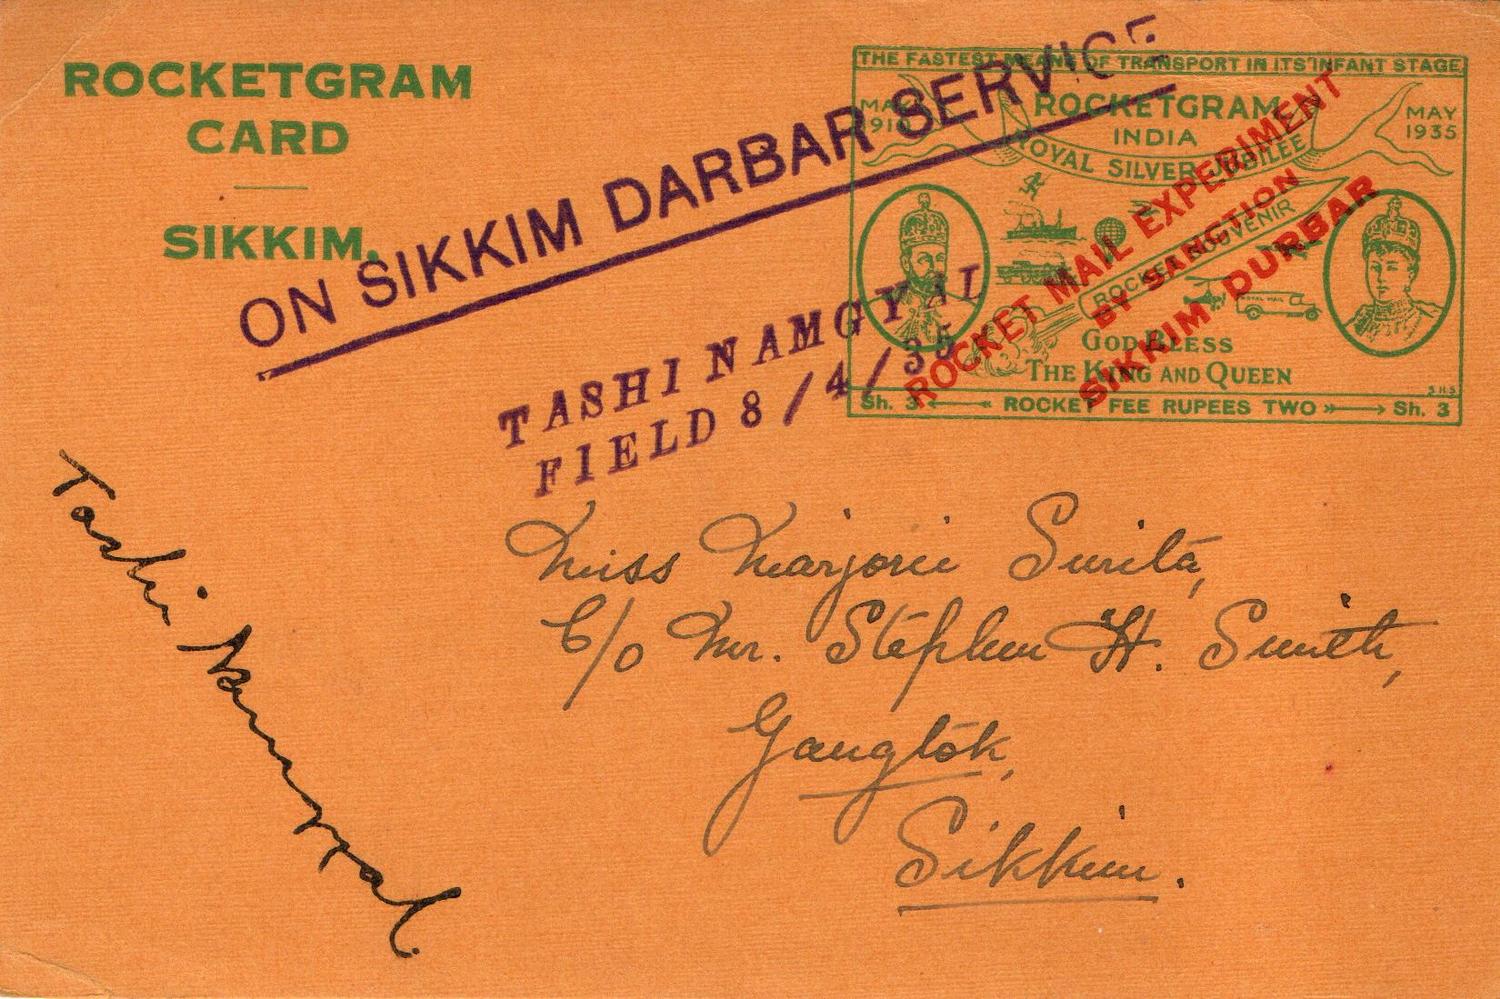 ROCKETGRAM
CARD
SIKKIM.
ON SIKKIM DARBAR SERVICE
TASHI NAMGYAL
FIELD 8/4/35
THE FASTEST MEANS OF TRANSPORT IN ITS INFANT STAGE
MAY
1910
ROCKETGRAM
INDIA
MAY
1935
ROYAL SILVER JUBILEE
ROCKET SOUVENIR
ROYAL MAIL
GOD BLESS
THE KING AND QUEEN
S.H.S
Sh. 3 ROCKET FEE RUPEES TWO Sh. 3
ROCKET MAIL EXPERIMENT
BY SANCTION
SIKKIM DURBAR
Miss Marjorie Smith,
C/o Mr. Stephen H. Smith,
Gangtok,
Sikkim.
Tashi Namgyal.